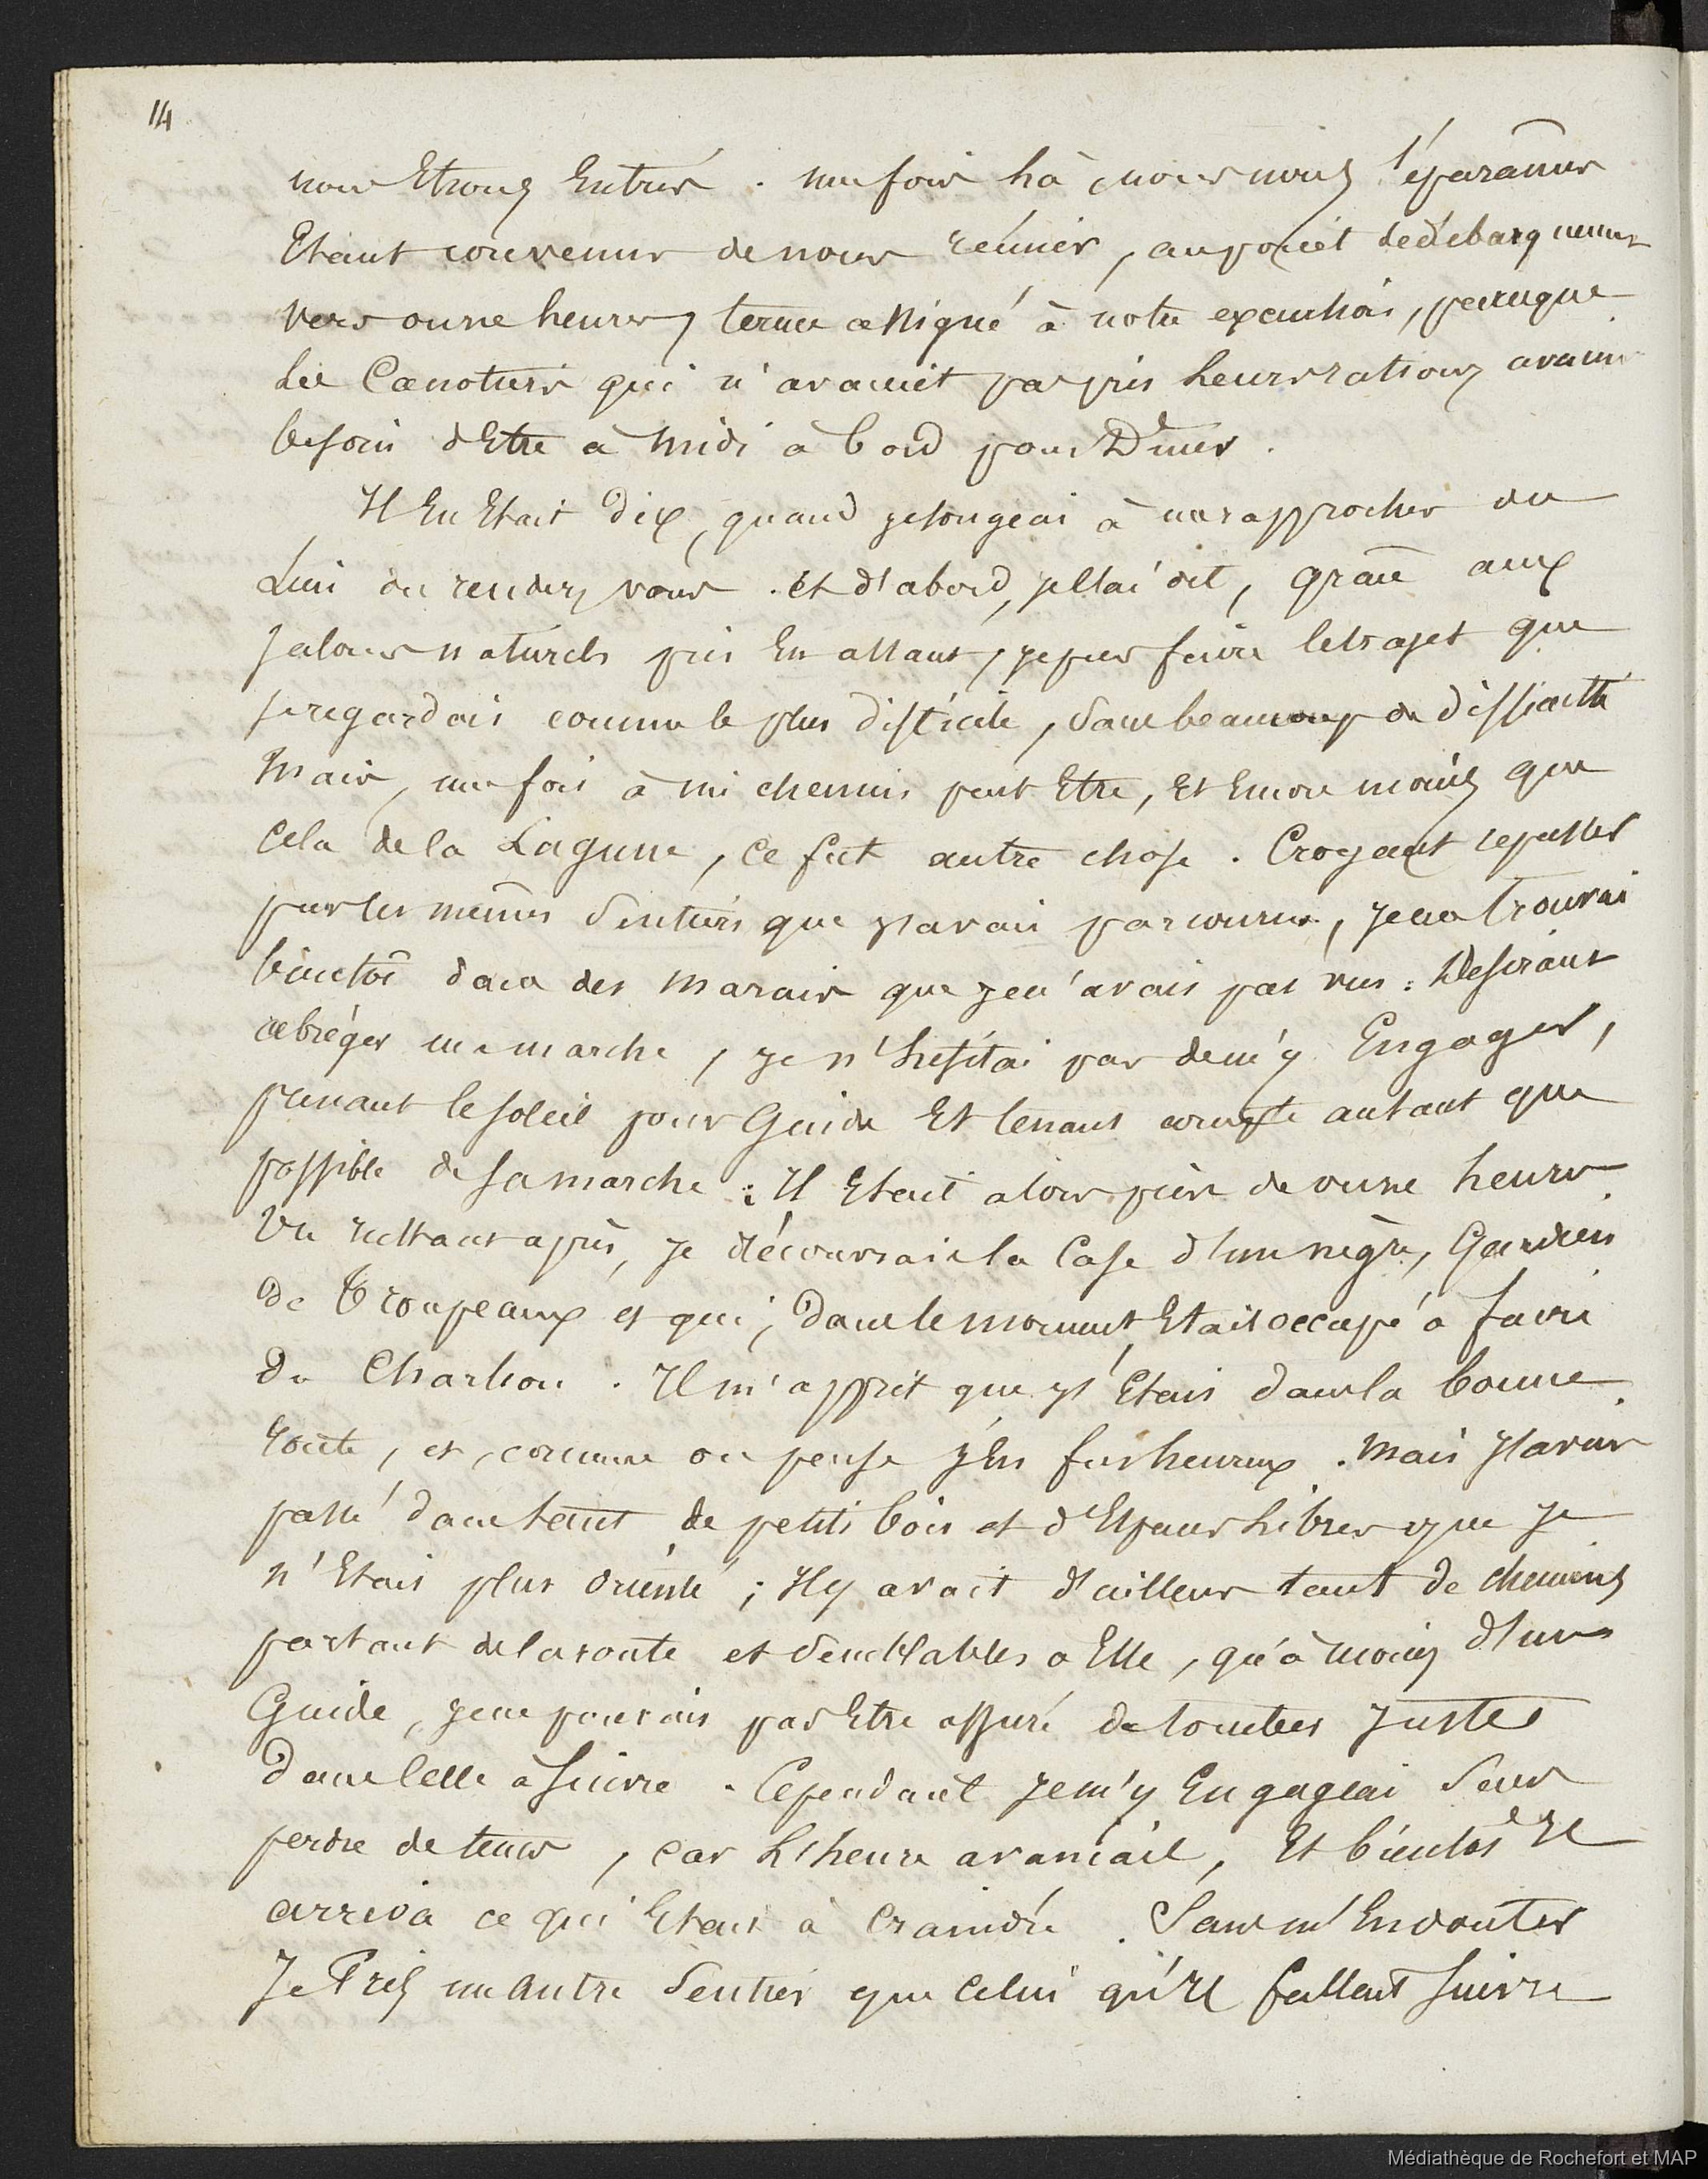 14
nous Etions Entrés . une fois là, nous nous séparâmes
Etant convenus de nous réunir, au point de débarquement
vers onze heures, terme assigné à notre excursion, parceque
les Canotiers qui n'avaient pas pris leurs rations avaient
besoin d'Etre à Midi à bord pour Diner.
Il En Etait dix, quand je songeai à me rapprocher du
Lieu du rendez vous . et d'abord, je l'ai dit, grâce aux
jalons naturels pris En allant, je pus faire le trajet que
je regardais comme le plus difficile, sans beaucoup de difficulté
Mais, une fois à mi chemin peut Etre, Et Encore moins que
cela de la Lagune, ce fut autre chose . Croyant repasser
par les mêmes sentiers que j'avais parcourus, je me trouvai
bientôt dans des marais que je n'avais pas vus : Desirant
abréger ma marche, je n'hésitai pas de m'y Engager,
prenant le soleil pour Guide Et tenant compte autant que
possible de sa marche : Il Etait alors près de onze heures.
Un instant après, je découvrais la Case d'un nègre, Gardien
de Troupeaux et qui, dans le moment, Etait occupé à faire
du Charbon . Il m'apprit que j'Etais dans la bonne
route, et, comme on pense j'En fus heureux . Mais j'avais
passé dans tant de petits bois et d'Espaces libres que je
n'Etais plus orienté ; Il y avait d'ailleurs tant de chemins
partant de la route et semblables à Elle, qu'à moins d'un
Guide, je ne pouvais pas Etre assuré de tomber juste
dans celle à suivre . Cependant je m'y Engageai sans
perdre de tems, car l'heure avançait, Et bientôt Il
arriva ce qui Etait à craindre . Sans m'En douter
Je Pris un autre sentier que celui qu'Il fallait suivre
Médiathèque de Rochefort et MAP